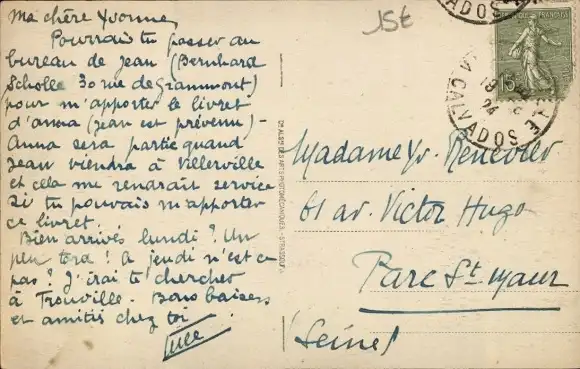 Ma chère Yvonne,
Pourrais tu passer au
bureau de Jean (Bernhard
Scholle 30 rue de Grammont)
pour m'apporter le livret
d'anna (Jean est prévenu) -
Anna sera partie quand
Jean viendra à Villerville
et cela me rendrait service
si tu pouvais m'apporter
ce livret.
Bien arrivés lundi ? Un
peu tard ! A jeudi n'est ce
pas ? J'irai te chercher
à Trouville. Bons baisers
et amitiés chez toi
15€
Madame Yv.
61 av. Victor Hugo
Parc St. Maur
(Seine)
REPUBLIQUE FRANÇAISE
15
CALVADOS
24